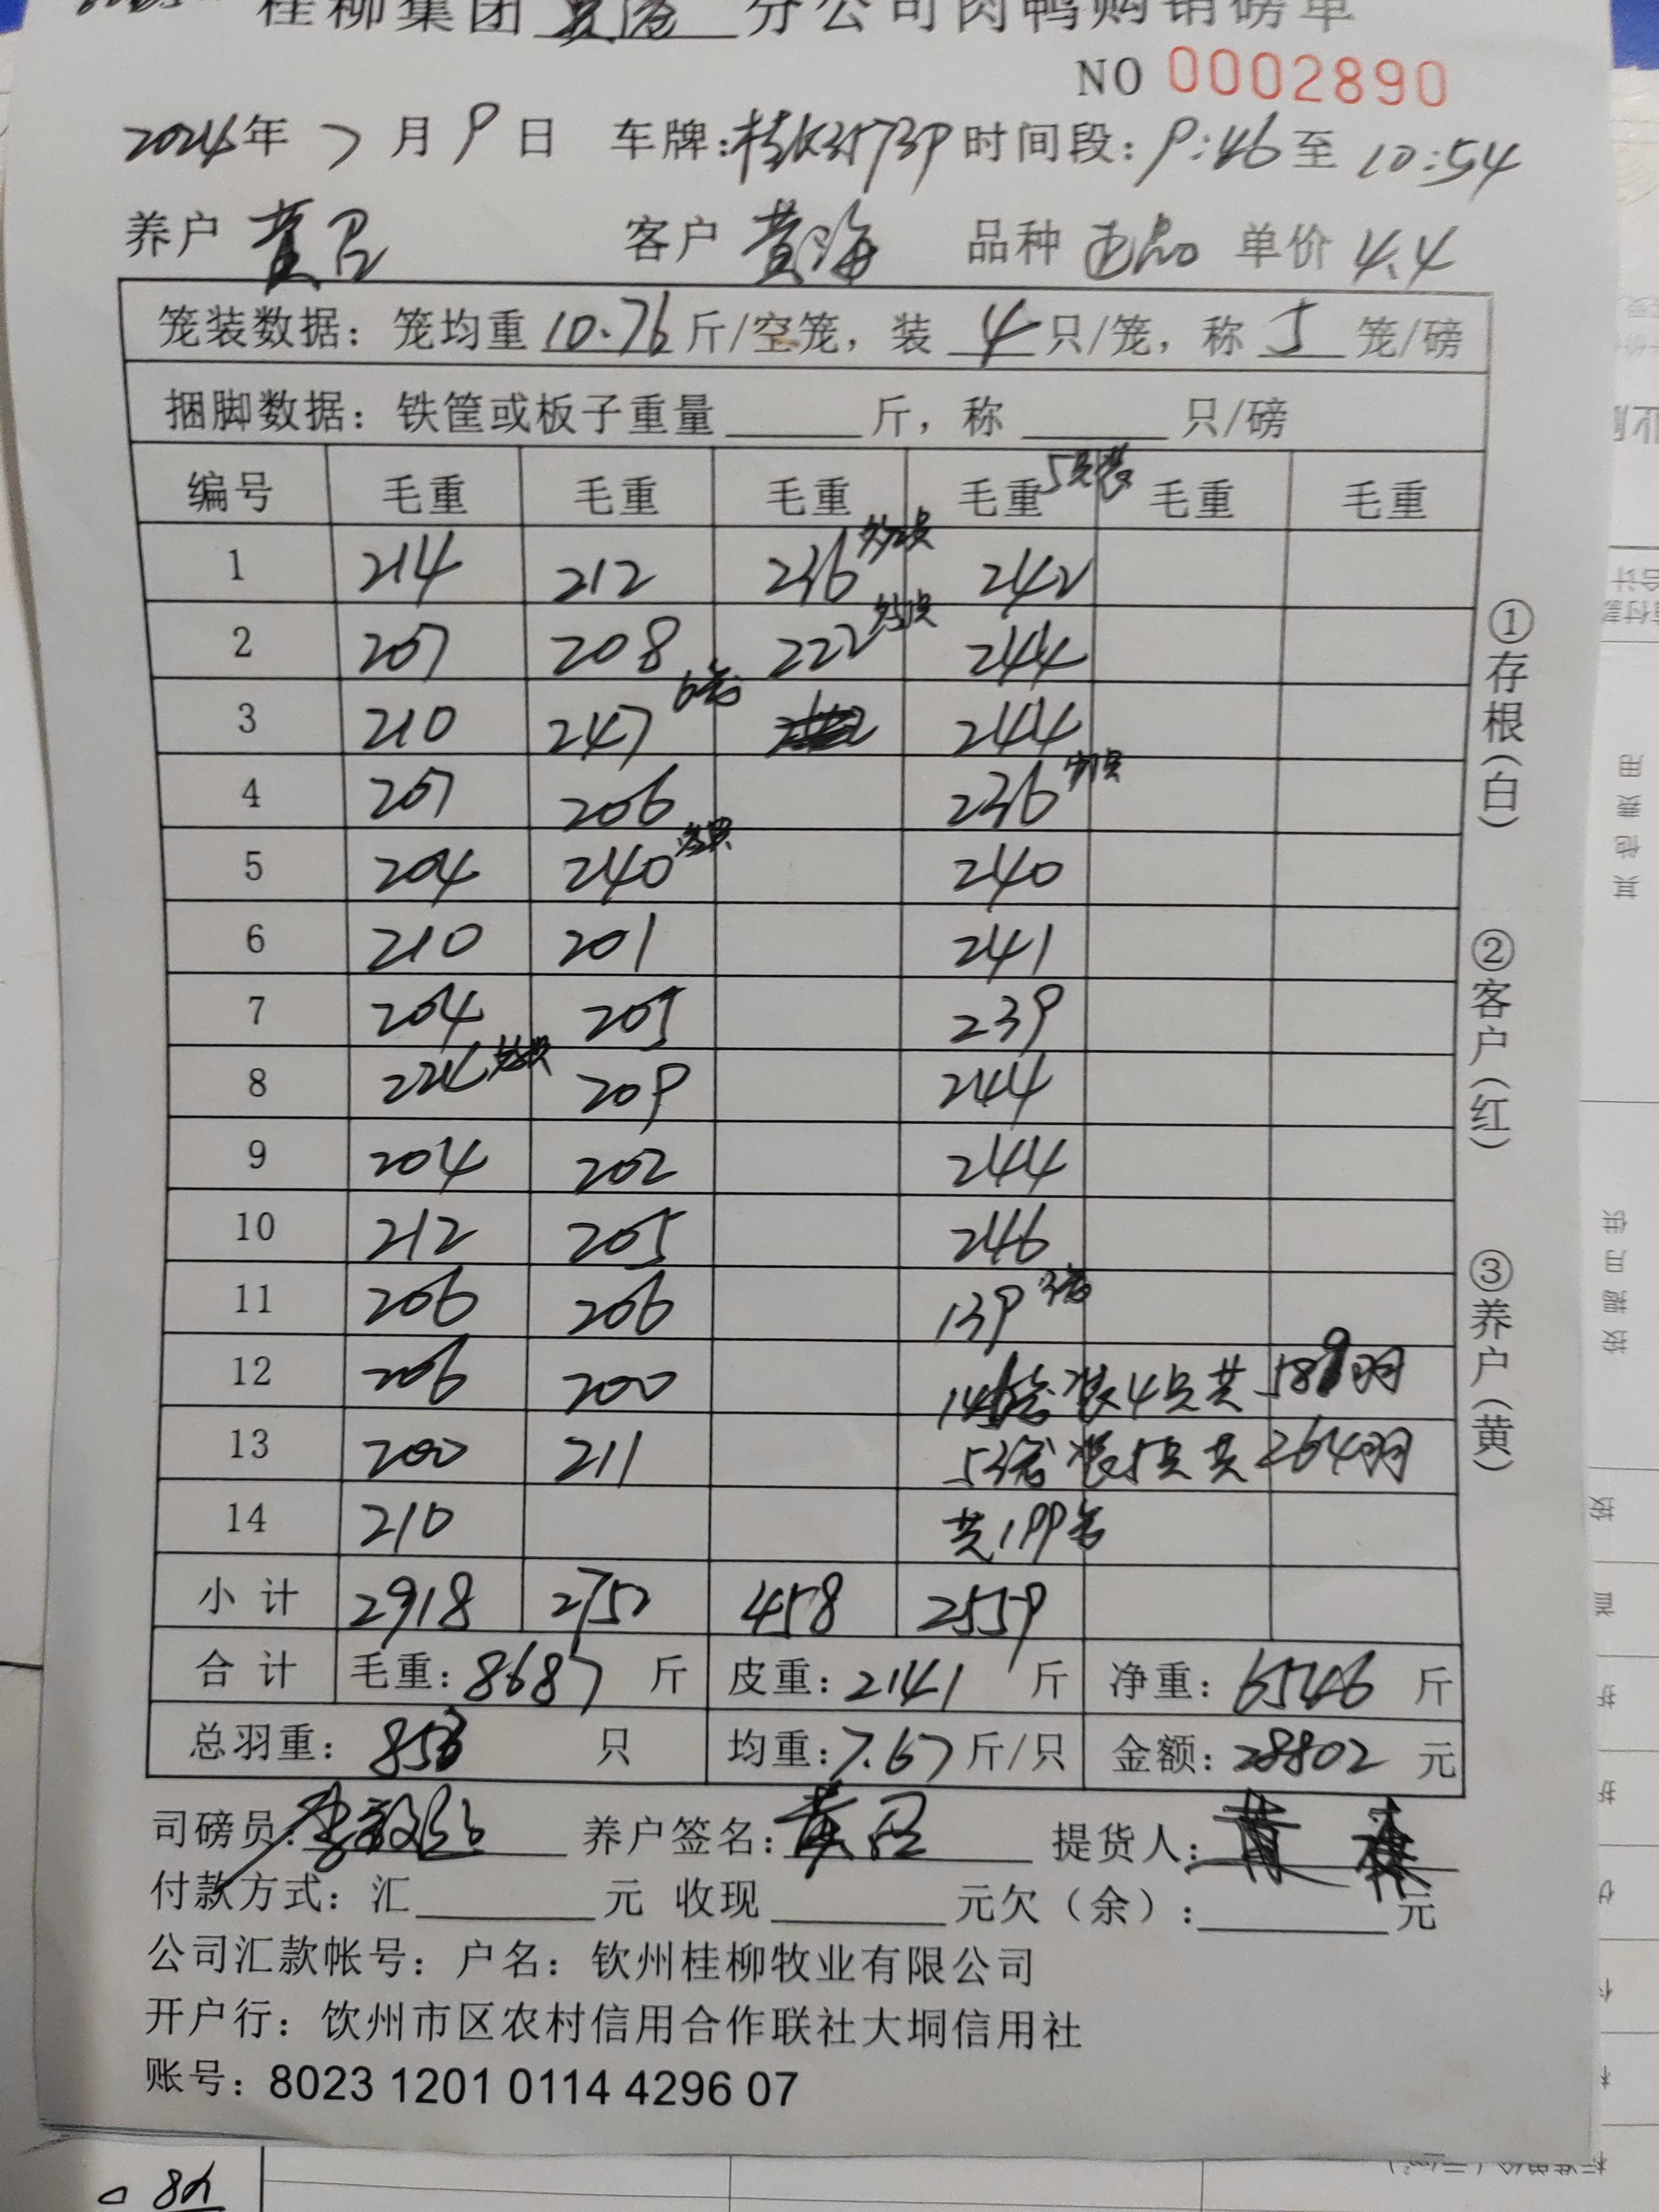 桂柳集团贵港分公司肉鸭购销磅单
NO 0002890
2024年 7月 9日 车牌: 时间段: 9:46至 10:54
养户 黄卫 客户 黄海 品种 正品 单价 4.4
笼装数据：笼均重 10.76 斤/空笼，装 4 只/笼，称 5 笼/磅
捆脚数据：铁筐或板子重量 斤，称 只/磅
编号 毛重 毛重 毛重 毛重 5只装 毛重 毛重
1 214 212 236 242
2 207 208 222 244
3 210 247 6笼 244
4 207 206 236
5 204 240 240
6 210 201 241
7 204 205 239
8 224 209 244
9 204 202 244
10 212 205 246
11 206 206 139 3笼
12 206 200 146笼装4只共589羽
13 200 211 53笼装5只共264羽
14 210 共199笼
小计 2918 2752 458 2559
合计 毛重：8687 斤 皮重：2141 斤 净重：6546 斤
总羽重：853 只 均重：7.67 斤/只 金额：28802 元
司磅员: 养户签名：黄卫 提货人：黄
付款方式：汇 元 收现 元欠（余）： 元
公司汇款帐号：户名：钦州桂柳牧业有限公司
开户行：饮州市区农村信用合作联社大垌信用社
账号：8023 1201 0114 4296 07
①存根（白）
②客户（红）
③养户（黄）